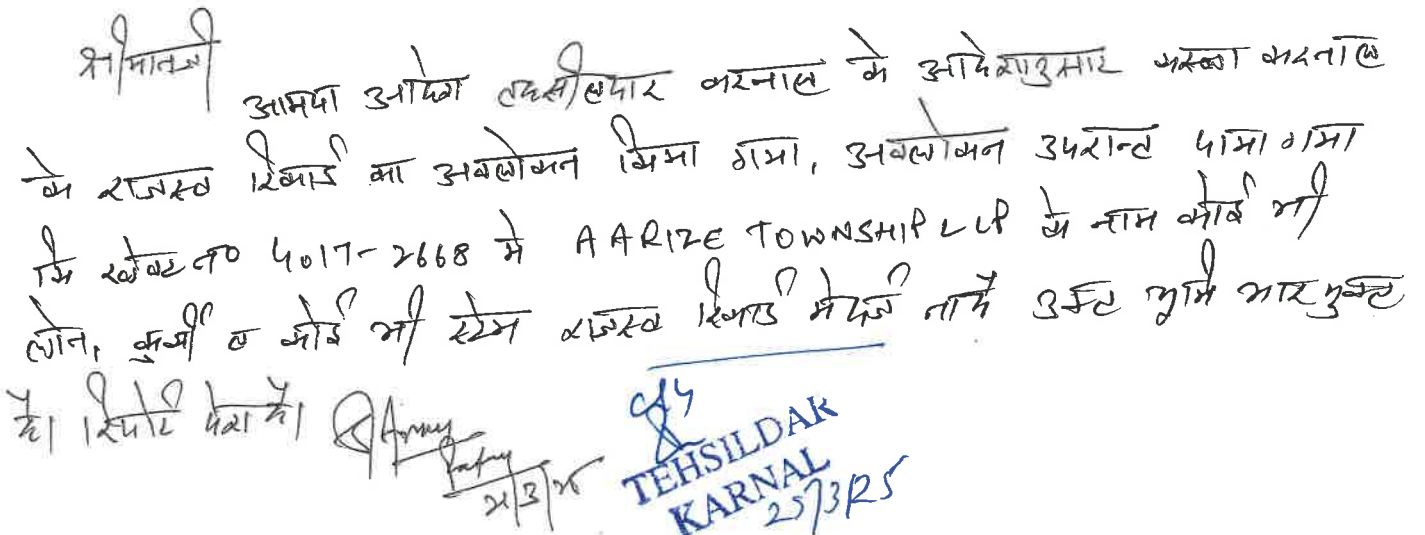 श्रीमानजी
आपका आदेश तहसीलदार करनाल के आदेशानुसार कस्बा करनाल
के राजस्व रिकार्ड का अवलोकन किया गया, अवलोकन उपरान्त पाया गया
कि खेवट न० 4017-2668 मे AARIZE TOWNSHIP LLP के नाम कोई भी
लोन, कुर्की व कोई भी स्टेय राजस्व रिकार्ड मे दर्ज ना है उक्त भूमि भार मुक्त
है। रिपोर्ट पेश है।
TEHSILDAR
KARNAL
25/3/25